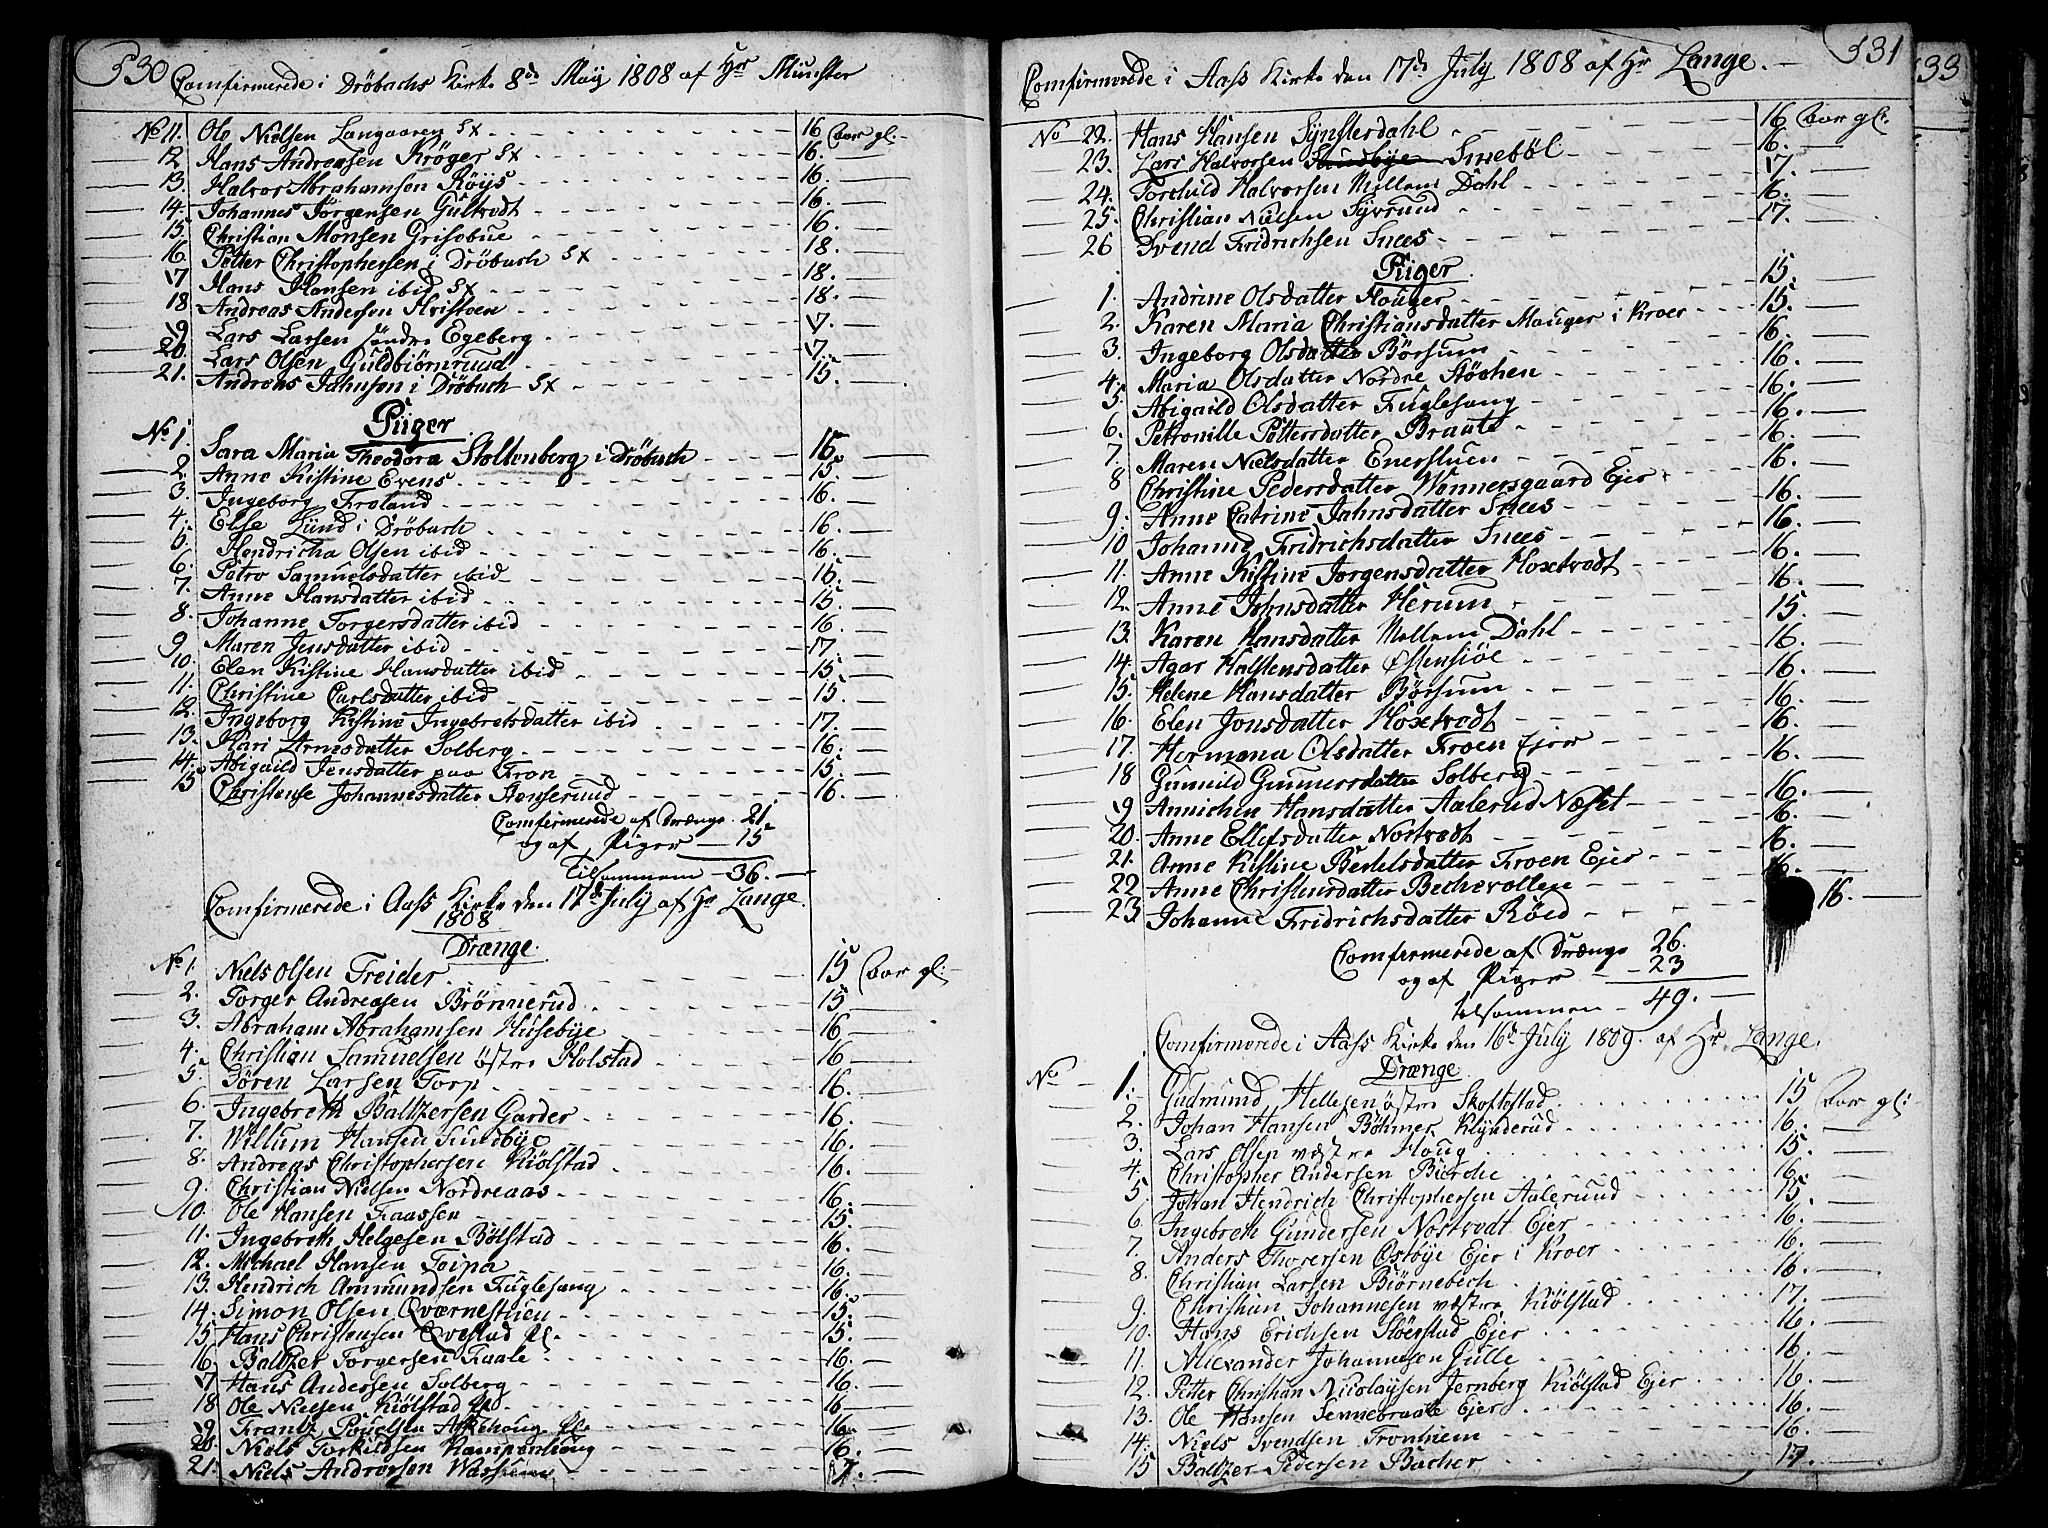 330
Comfirmerede i Dröbachs Kirke 8de May 1808 af Hr Munster
No 11. Ole Nielsen Langaaren Sx 16 aar gl:
12 Hans Andreasen Kröger Sx 16.
13. Halvor Abrahamsen Röys 16.
14. Johannes Jörgensen Gultvedt 16.
15 Christian Monsen Grisebue 16.
16. Petter Christophersen i Dröbach Sx 18.
17 Hans Hansen ibid Sx 18.
18 Andreas Andersen 18.
19 Lars Larsen söndre Egeberg 17.
20. Lars Olsen Guldbiörnruud 17.
21. Andreas Jahnsen i Dröbach Sx 15.
Piiger
No 1. Sara Maria Theodora Stoltenberg i Dröbach 15
2. Anne Kistine Evens 15.
3 Ingeborg Froland 16.
4. Else Lund i Dröbach 16.
5. Hendricha Olsen ibid 16.
6. Petro Samuelsdatter ibid 15.
7. Anne Hansdatter ibid 15.
8. Johanne Torgersdatter ibid 16.
9. Maren Jensdatter ibid 17.
10. Elen Kistine Hansdatter ibid 15.
11. Christine Carlsdatter ibid 15.
12. Ingeborg Kistine Ingebretsdatter ibid 17.
13. Kari Arnesdatter Solberg 16.
14. Abigaild Jensdatter paa Fron 15.
15 Christense Johannesdatter Stenserund 16.
Comfirmerede af Drænge 21.
og af Piger 15
Tilsammen 36.
Comfirmerede i Aass Kirke den 17de July af Hr Lange
1808
Drænge
No 1. Niels Olsen Treider 15 aar gl:
2. Torger Andreasen Brönnerud 15
3. Abraham Abrahamsen Husebye 16
4. Christian Samuelsen östre Holstad 16
5. Sören Larsen Torp 16.
6. Ingebreth Baltzersen Garder 16.
7. Willum Hansen Sundbye 16.
8. Andreas Christophersen Kiölstad 16.
9. Christian Nielsen Nordreaas 16.
10. Ole Hansen Faassen 15.
11. Ingebreth Helgesen Bölstad 16.
12. Michael Hansen Foipa 16.
13. Hendrich Ammundsen Fuglesang 16.
14. Simon Olsen Qværnestuen 15.
15 Hans Christensen Qvestad 15.
16 Baltzer Torgersen Faale 16.
17 Hans Andersen Solberg 16.
18 Ole Nielsen Kiölstad 16
19 Frantz Pouelsen Askehoug 16.
20. Niels Torkildsen Kamperhoug 16.
21. Niels Andersen 17.
331
Comfirmerede i Aass Kirke den 17de July 1808 af Hr Lange.
No 22. Hans Hansen Synsterdahl 16 aar gl:
23. Lars Halvorsen Sundbye Smeböl 16.
24. Torchild Halvorsen Mellem Dahl 17.
25. Christian Nielsen Syvrund 16.
26 Svend Fridrichsen Snees 17.
Piiger
1. Andrine Olsdatter Houger 15.
2. Karen Maria Christiansdatter Mauger i Kroer 15.
3. Ingeborg Olsdatter Börsum 16.
4. Maria Olsdatter Nordre Stöchen 16.
5. Abigaild Olsdatter Fuglesang 16.
6. Petronille Pettersdatter Braate 16.
7. Maren Nielsdatter Enerstuen 16.
8 Christine Pedersdatter Wonnersgaard Ejer 16.
9. Anne Catrine Jahnsdatter Snees 16.
10 Johanne Fridrichsdatter Snees 16.
11. Anne Kistine Jörgensdatter Hoxtvedt 16.
12. Anne Johnsdatter Herum 16.
13. Karen Hansdatter Mellem Dahl 15.
14. Agar Halstensdatter Østensiöe 16.
15. Helene Hansdatter Börsum 16.
16. Elen Jonsdatter Hoxtvedt 16.
17. Hermana Olsdatter Froen Ejer 16.
18 Gunnild Gunnersdatter Solberg 16.
19 Annichen Hansdatter Aalerud Næset 16.
20. Anne Ellefsdatter Nortvedt 16.
21. Anne Kistine Bertelsdatter Froen Ejer 16.
22 Anne Christensdatter Bechevollen 16.
23 Johanne Fridrichsdatter Röed 16.
Comfirmerede af Drænge 26.
og af Piger 23
tilsammen 49.
Comfirmerede i Aass Kirke den 16de July 1809. af Hr Lange.
Drænge
No 1. Gudmund Hellesen östre Skoftestad 15 aar gl:
2. Johan Hansen Böhmer Klynderud 16.
3. Lars Olsen vestre Houg 15.
4. Christopher Andersen Biærche 16.
5. Johan Hendrich Christophersen Aalerund 15.
6. Ingebreth Gundersen Nostvedt Ejer 16.
7. Anders Thoresen Ostbye Ejer i Kroer 16.
8. Christian Larsen Biörnebech 16.
9. Christian Johannesen vestre Kiölstad 17.
10. Hans Erichsen Stöerstad Ejer 16.
11. Allexander Johannesen Gulle 16.
12. Petter Christian Nicolaysen Jernberg Kiölstad Ejer 16.
13. Ole Hansen Sennebraate Ejer 16.
14. Niels Svendsen Tromnem 16.
15 Baltzer Pedersen Bacher 17.
33